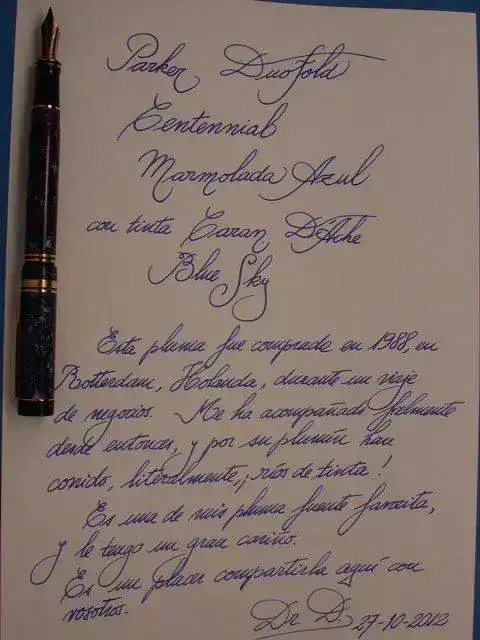 Parker Duofold
Centennial
Marmolada Azul
con tinta Caran D'Ache
Blue Sky
Esta pluma fue comprada en 1988, en
Rotterdam, Holanda, durante un viaje
de negocios. Me ha acompañado fielmente
desde entonces, y por su plumín han
corrido, literalmente, ¡ríos de tinta!
Es una de mis pluma fuente favorita,
y le tengo un gran cariño.
Es un placer compartirla aquí con
vosotros.
Dr. D. 27-10-2012